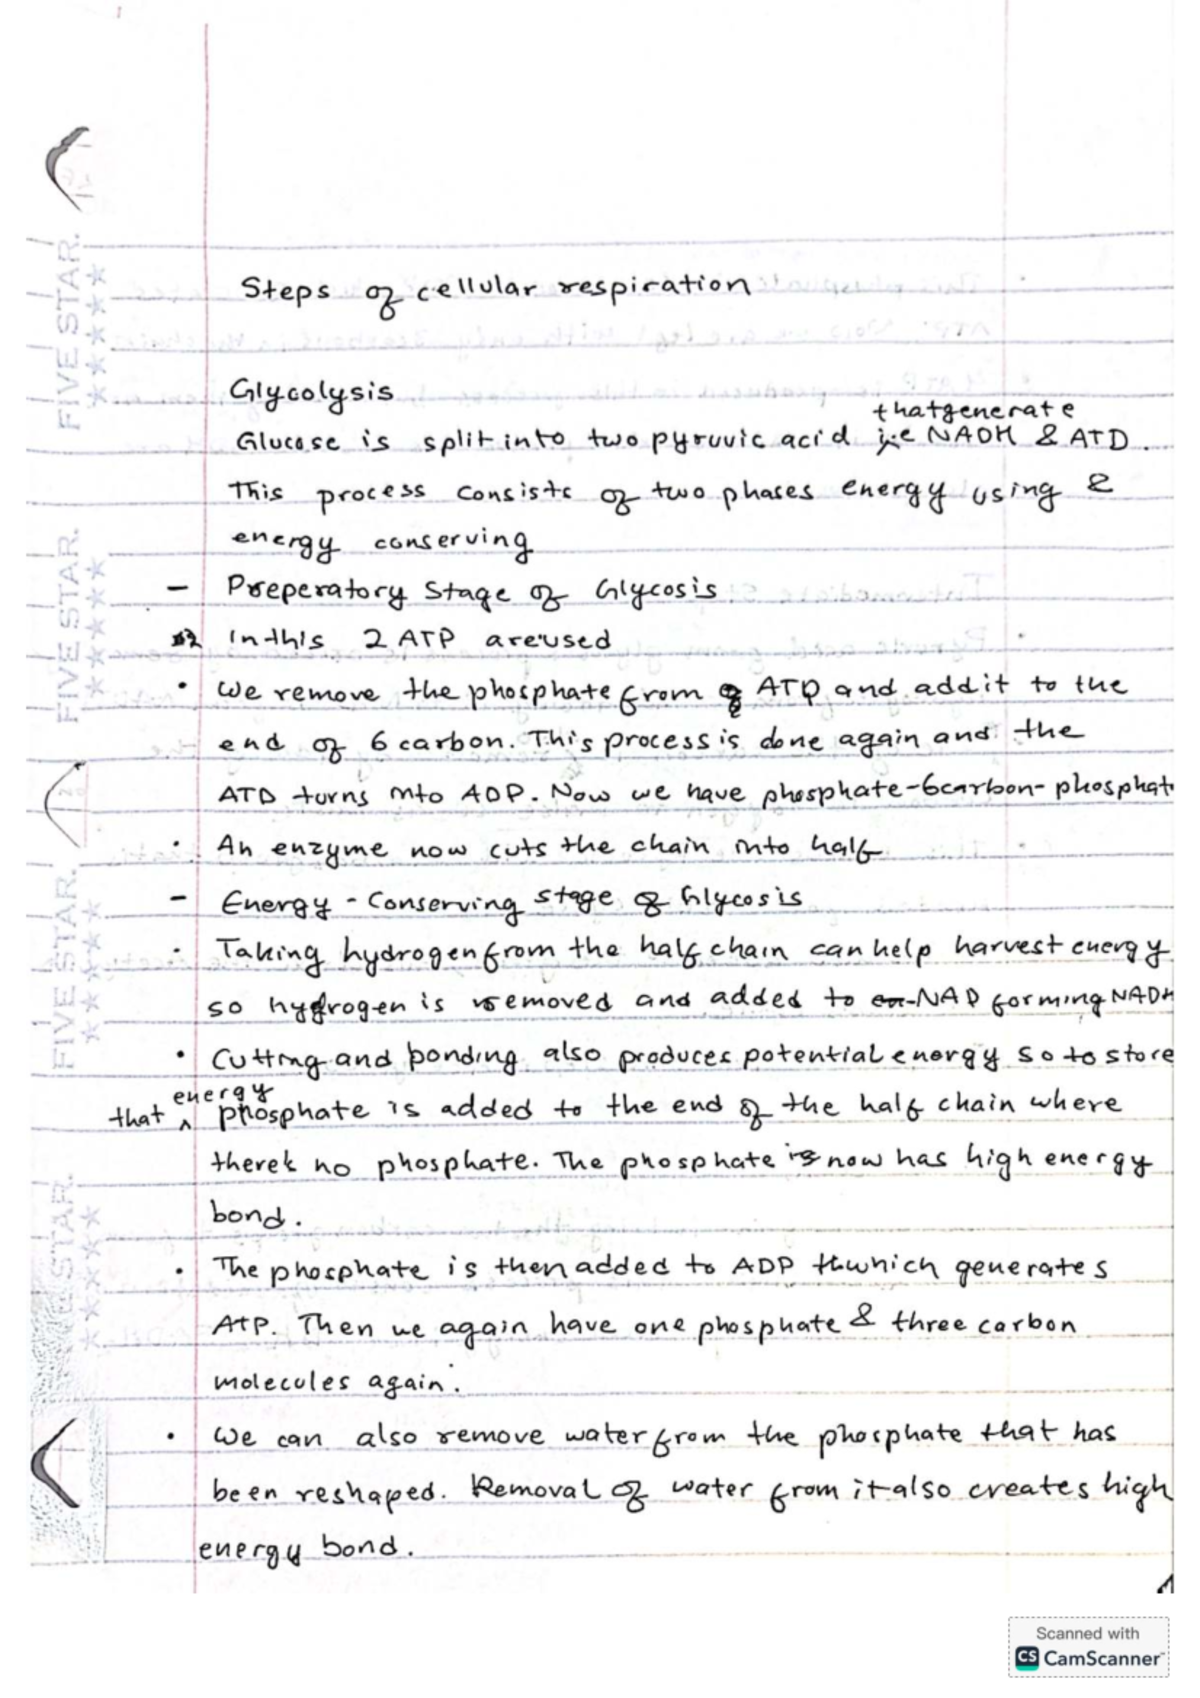 Steps of cellular respiration
Glycolysis
that generate
Glucose is split into two pyruvic acid i.e NADH & ATD.
This process consists of two phases energy using &
energy conserving
- Preperatory Stage of Glycosis
In this 2 ATP are used
• We remove the phosphate from ATD and add it to the
end of 6 carbon. This process is done again and the
ATD turns into ADP. Now we have phosphate-6carbon-phosphat
• An enzyme now cuts the chain into half
- Energy - Conserving stage of Glycosis
• Taking hydrogen from the half chain can help harvest energy
so hydrogen is removed and added to en NAD forming NADH
• Cutting and bonding also produces potential energy so to store
energy
that ^ phosphate is added to the end of the half chain where
there's no phosphate. The phosphate is now has high energy
bond.
• The phosphate is then added to ADP which generates
AtP. Then we again have one phosphate & three carbon
molecules again.
• We can also remove water from the phosphate that has
been reshaped. Removal of water from it also creates high
energy bond.
FIVE STAR.
FIVE STAR.
FIVE STAR.
STAR.
Scanned with
CS CamScanner